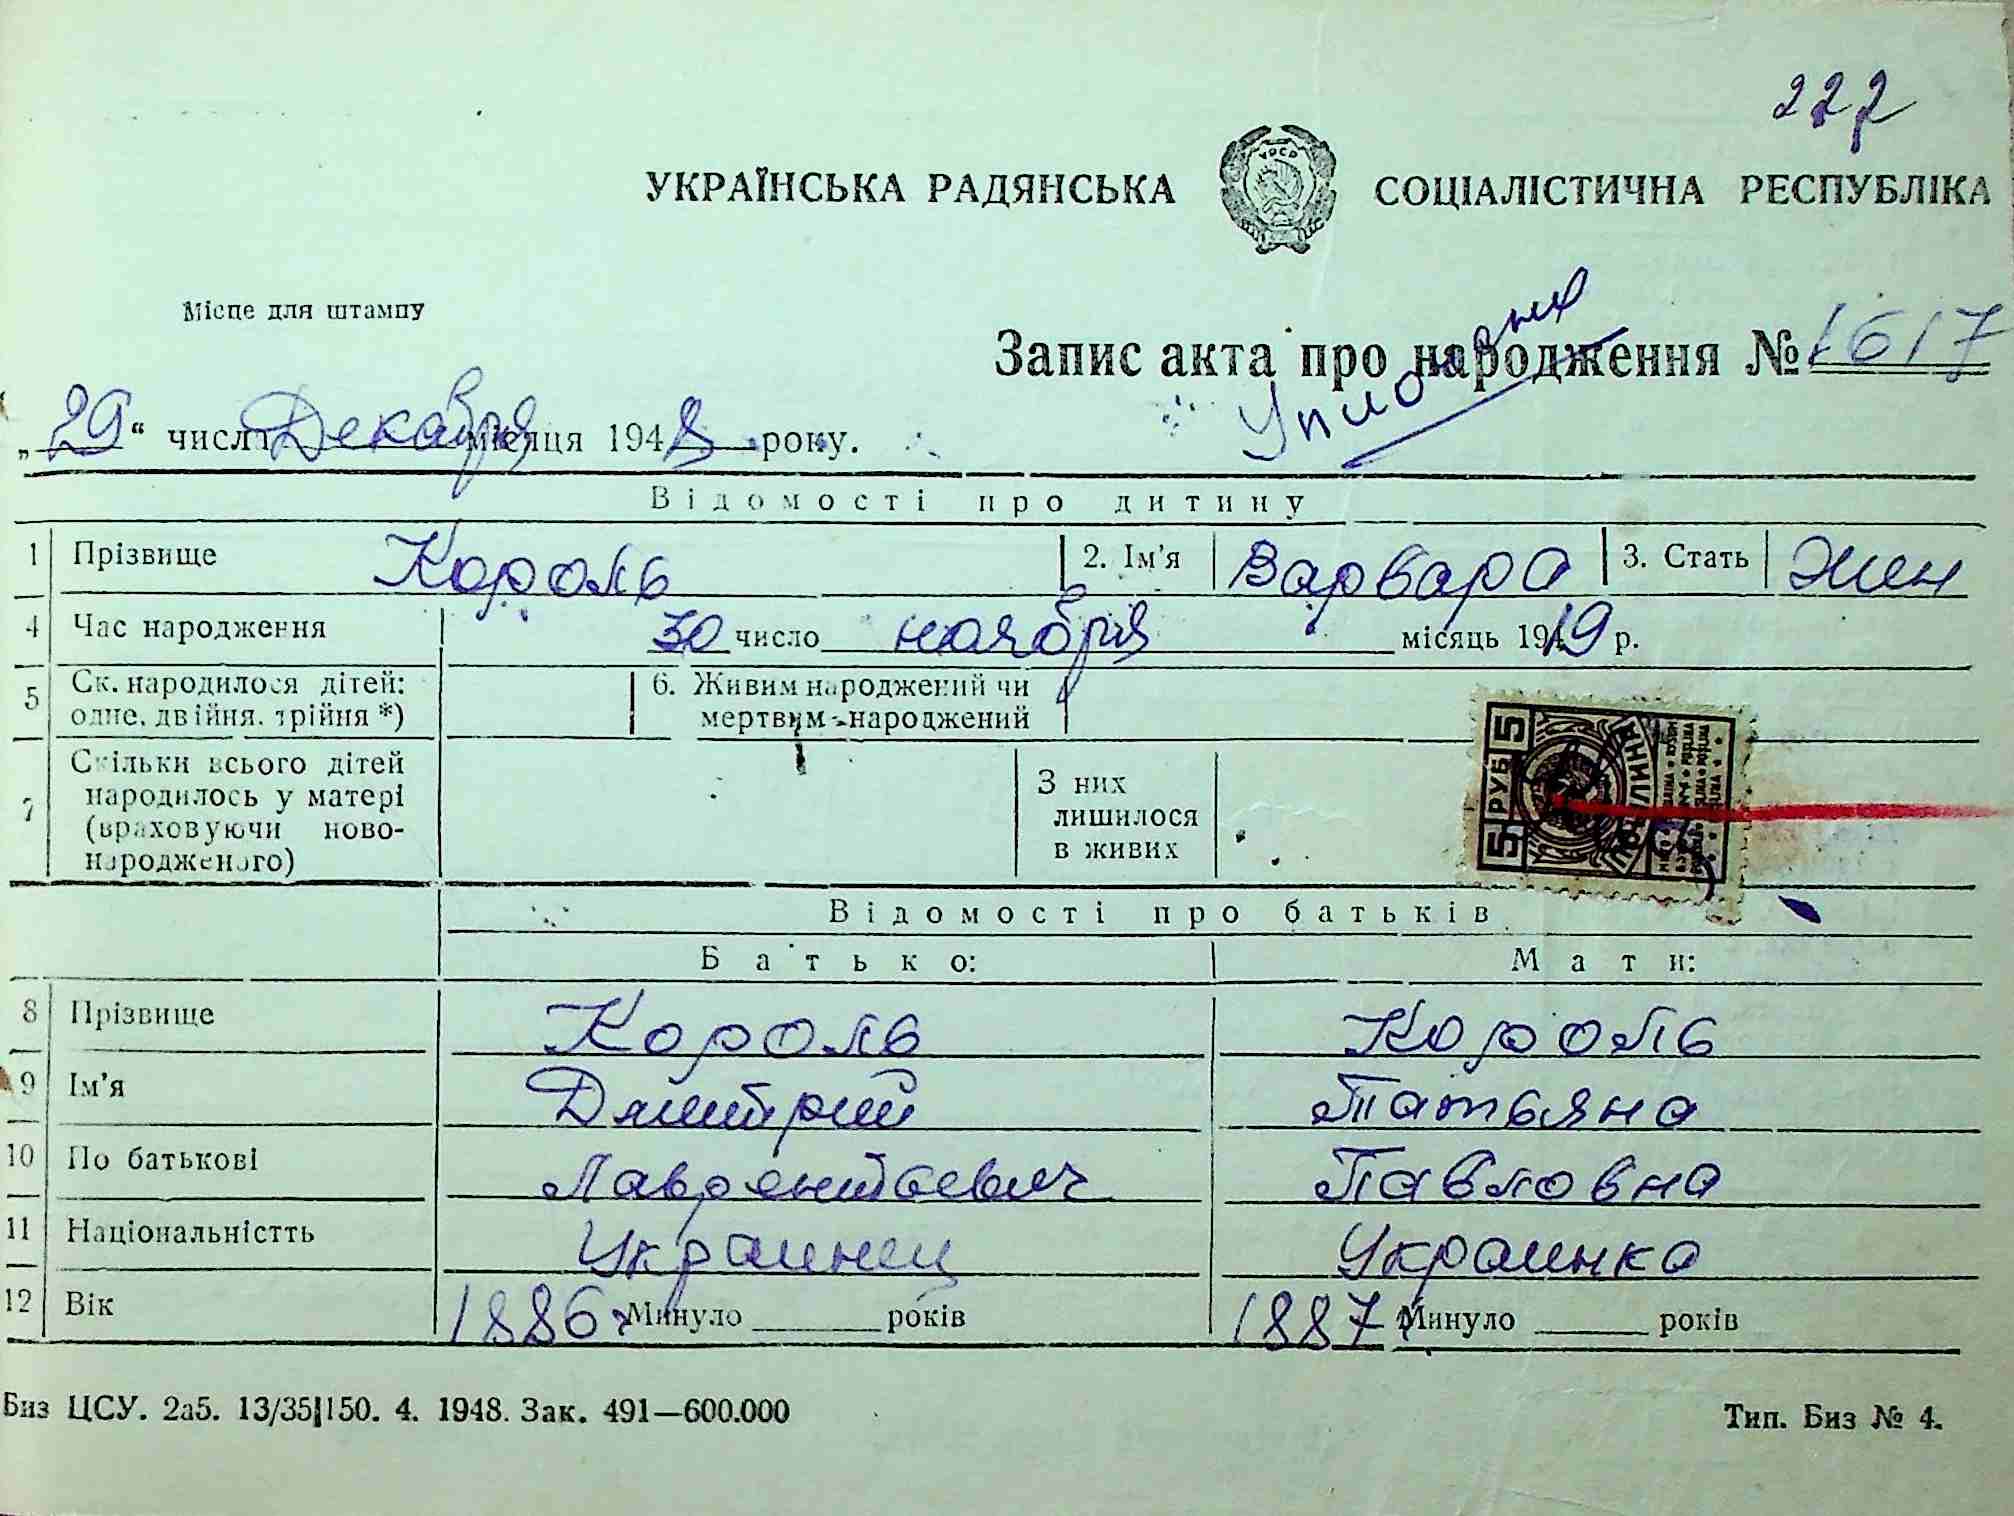 222
УКРАЇНСЬКА РАДЯНСЬКА СОЦІАЛІСТИЧНА РЕСПУБЛІКА
УРСР
Місце для штампу
Запис акта про народження № 1617
„29“ числа Декабря місяця 1948 року.
Відомості про дитину
1 Прізвище Король 2. Ім’я Варвара 3. Стать Жен
4 Час народження 30 число ноября місяць 1919 р.
5 Ск. народилося дітей: одне, двійня, трійня *) 6. Живим народжений чи мертвим народжений
7 Скільки всього дітей народилось у матері (враховуючи новонародженого) З них лишилося в живих
5 РУБ 5
Відомості про батьків
Батько: Мати:
8 Прізвище Король Король
9 Ім’я Дмитрий Татьяна
10 По батькові Лаврентьевич Павловна
11 Національністть Украинец Украинка
12 Вік 1886 Минуло років 1887 Минуло років
Биз ЦСУ. 2а5. 13/35|150. 4. 1948. Зак. 491—600.000 Тип. Биз № 4.